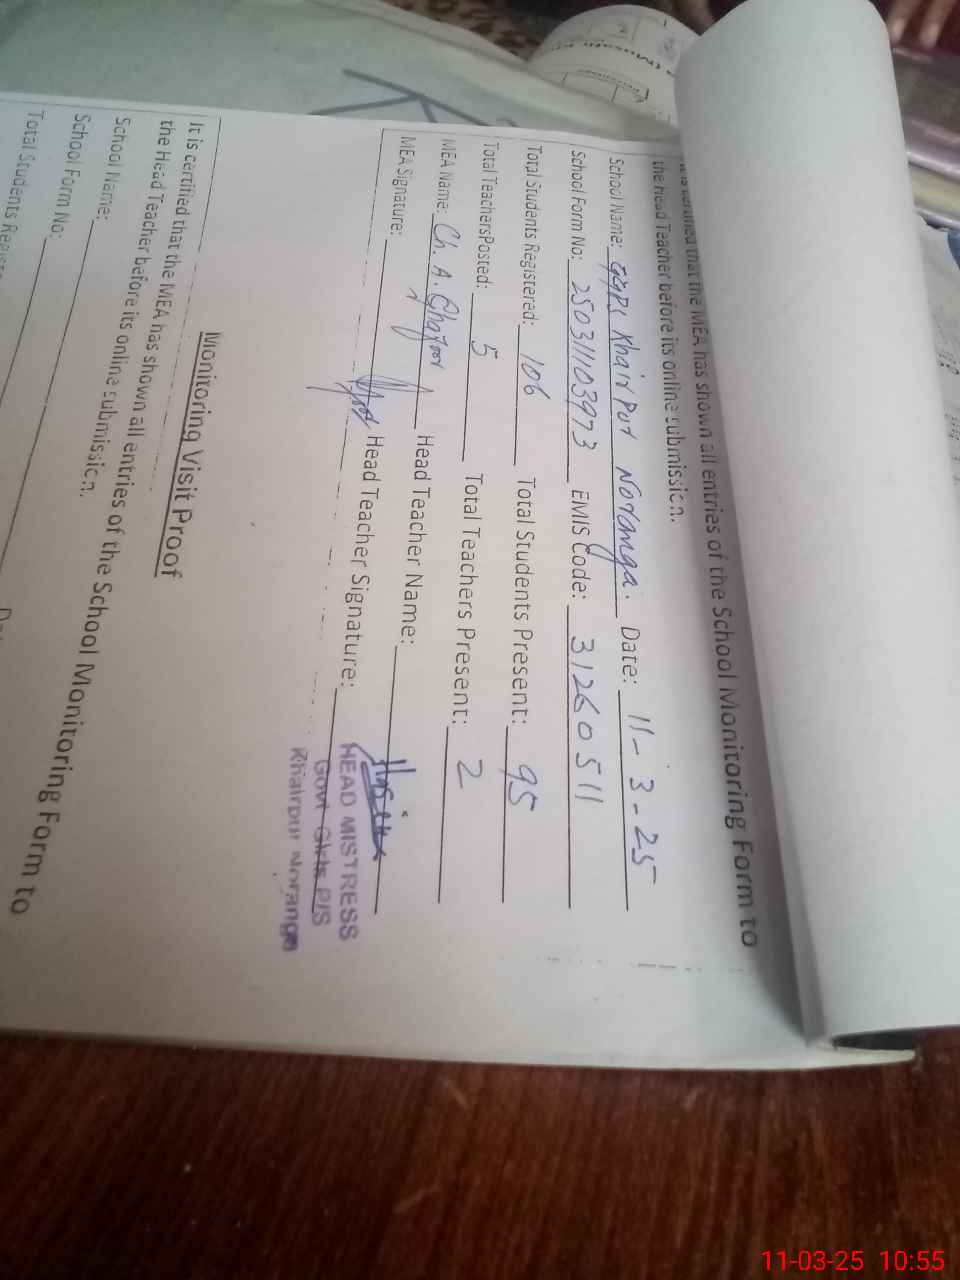 It is certified that the MEA has shown all entries of the School Monitoring Form to
the Head Teacher before its online submission.
School Name: GGPS Khairpur Noranga. Date: 11-3-25
School Form No: 25031103973 EMIS Code: 31260511
Total Students Registered: 106 Total Students Present: 95
Total TeachersPosted: 5 Total Teachers Present: 2
MEA Name: Ch. A. Ghafoor Head Teacher Name:
MEA Signature: Head Teacher Signature:
HEAD MISTRESS
Govt Girls P/S
Khairpur Noranga
Monitoring Visit Proof
It is certified that the MEA has shown all entries of the School Monitoring Form to
the Head Teacher before its online submission.
School Name:
School Form No:
Total Students
11-03-25 10:55